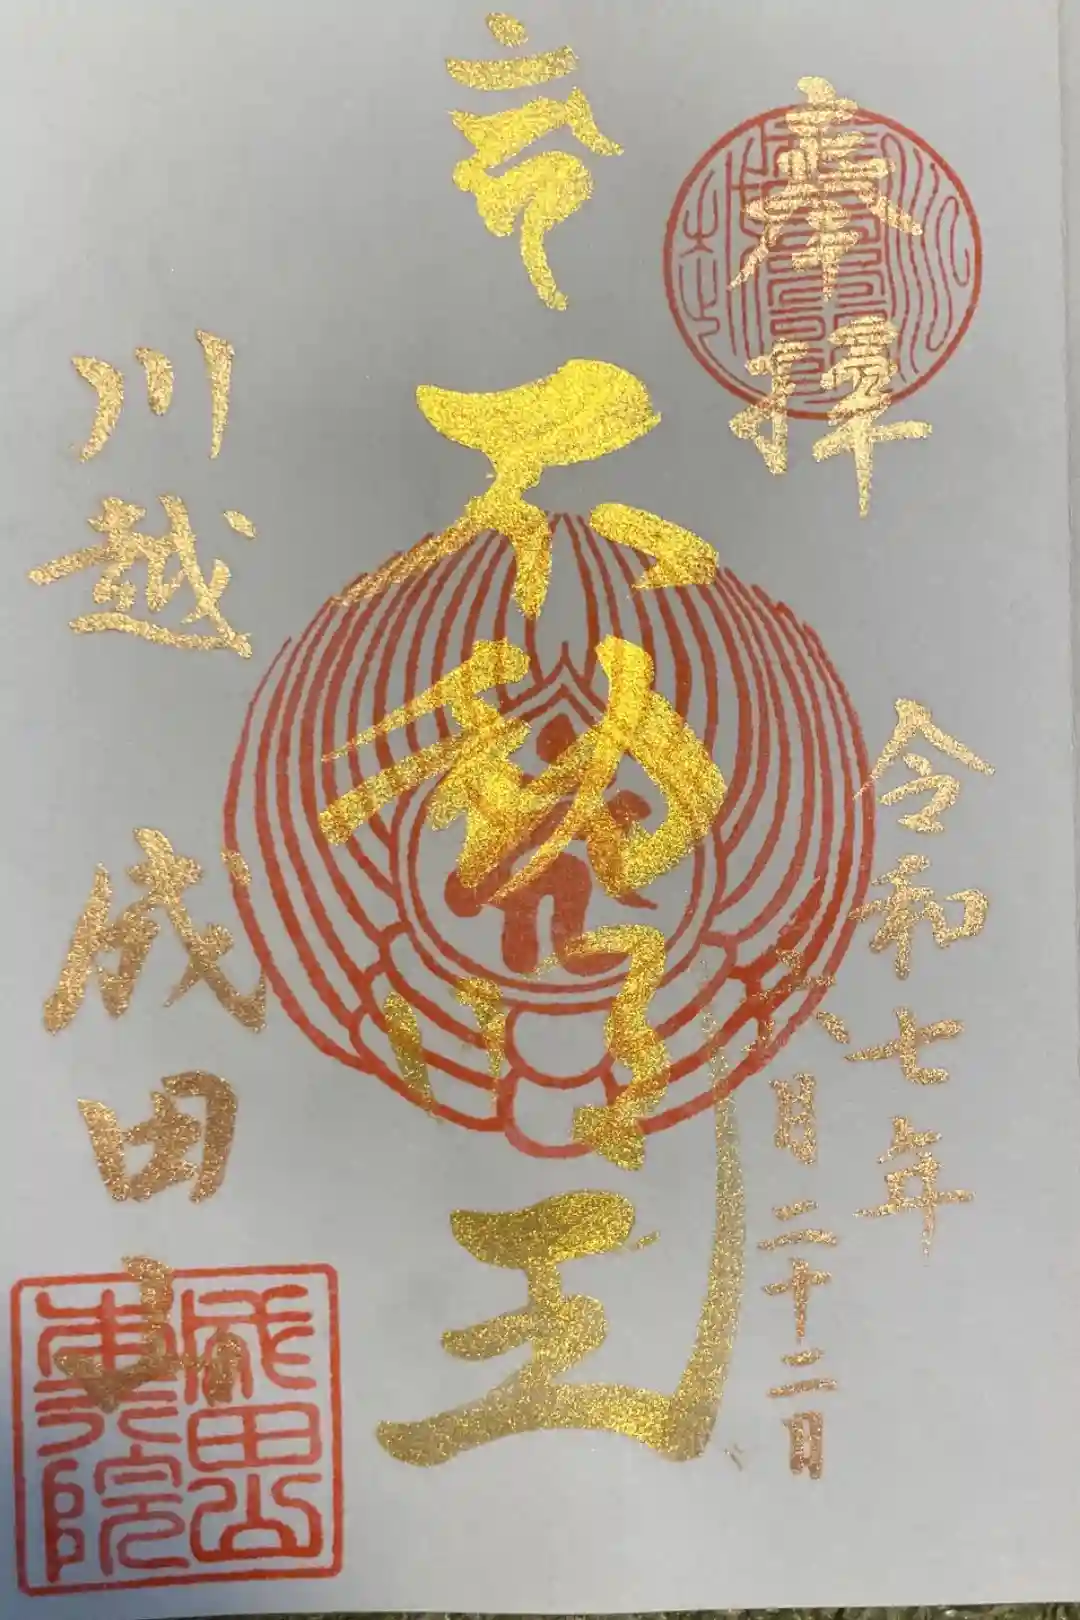 奉拝
令和七年
六月二十二日
不動明王
川越
成田山
成田山
本行院